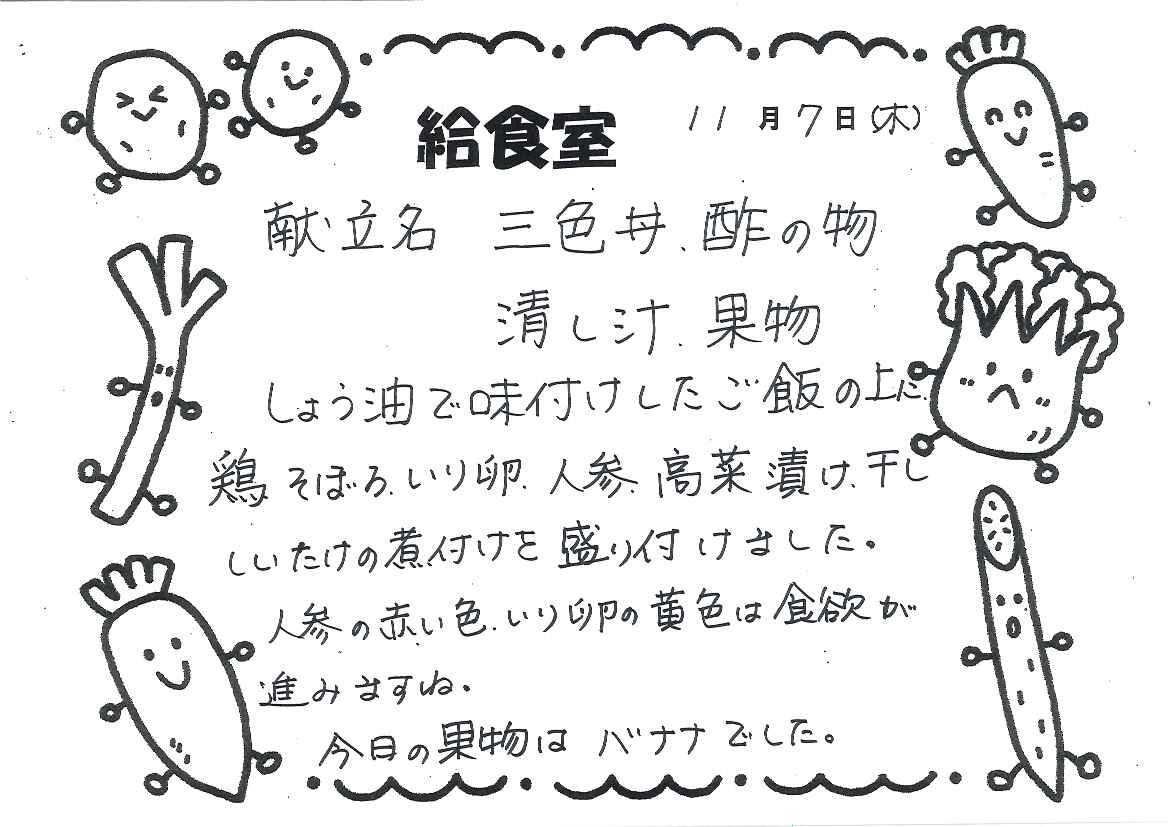 給食室 11月7日(木)
献立名 三色丼、酢の物
清し汁、果物
しょう油で味付けしたご飯の上に、
鶏そぼろ、いり卵、人参、高菜漬け、干し
しいたけの煮付けを盛り付けました。
人参の赤い色、いり卵の黄色は食欲が
進みますね。
今日の果物はバナナでした。